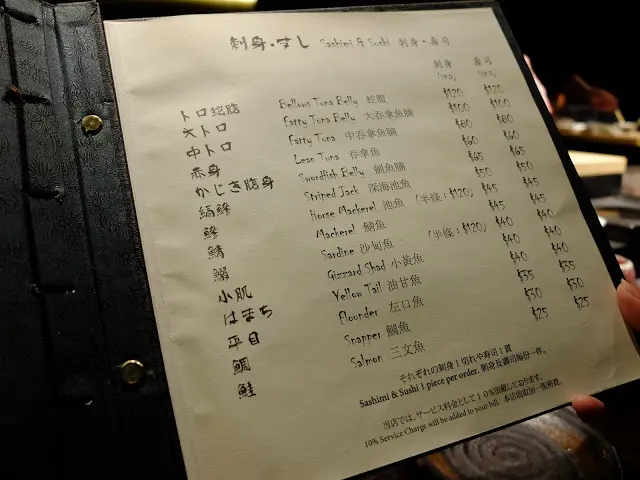 刺身・すし Sashimi & Sushi 刺身・壽司
刺身 壽司
(1pc) (1pc)
トロ蛇腹 Bellows Tuna Belly 蛇腹 $120 $120
大トロ Fatty Tuna Belly 大吞拿魚腩 $100 $100
中トロ Fatty Tuna 中吞拿魚腩 $80 $80
赤身 Lean Tuna 吞拿魚 $60 $60
かじき腹身 Swordfish Belly 劍魚腩 $65 $65
縞鯵 Striped Jack 深海池魚 $50 $50
鯵 Horse Mackerel 池魚 (半條：$120) $45 $45
鯖 Mackerel 鯖魚 $45 $45
鰯 Sardine 沙甸魚 (半條：$120) $40 $40
小肌 Gizzard Shad 小黃魚 $40 $40
はまち Yellow Tail 油甘魚 $40 $40
平目 Flounder 左口魚 $35 $35
鯛 Snapper 鯛魚 $30 $30
鮭 Salmon 三文魚 $25 $25
それぞれの刺身１切れや寿司１貫
Sashimi & Sushi 1 piece per order. 刺身及壽司每份一件。
当店では、サービス料金として１０％頂戴しております。
10% Service Charge will be added to your bill. 本店敬取加一服務費。